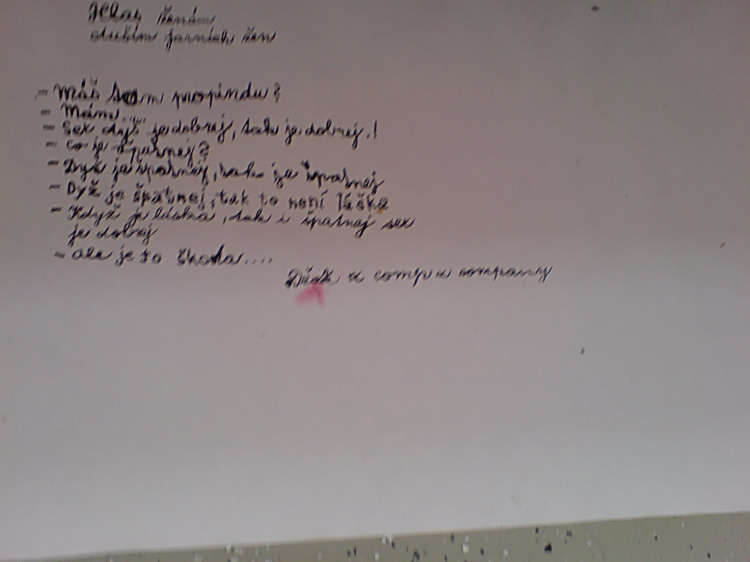 ženám
jarních žen
- Máš tam propindu?
- Mám....
- Sex dyž je dobrej, tak je dobrej!
- co je špatnej?
- Dyž je špatnej, tak je špatnej
- Dyž je špatnej, tak to není láska
- Když je láska, tak i špatnej sex
je dobrej
- ale je to škoda....
a comp a company